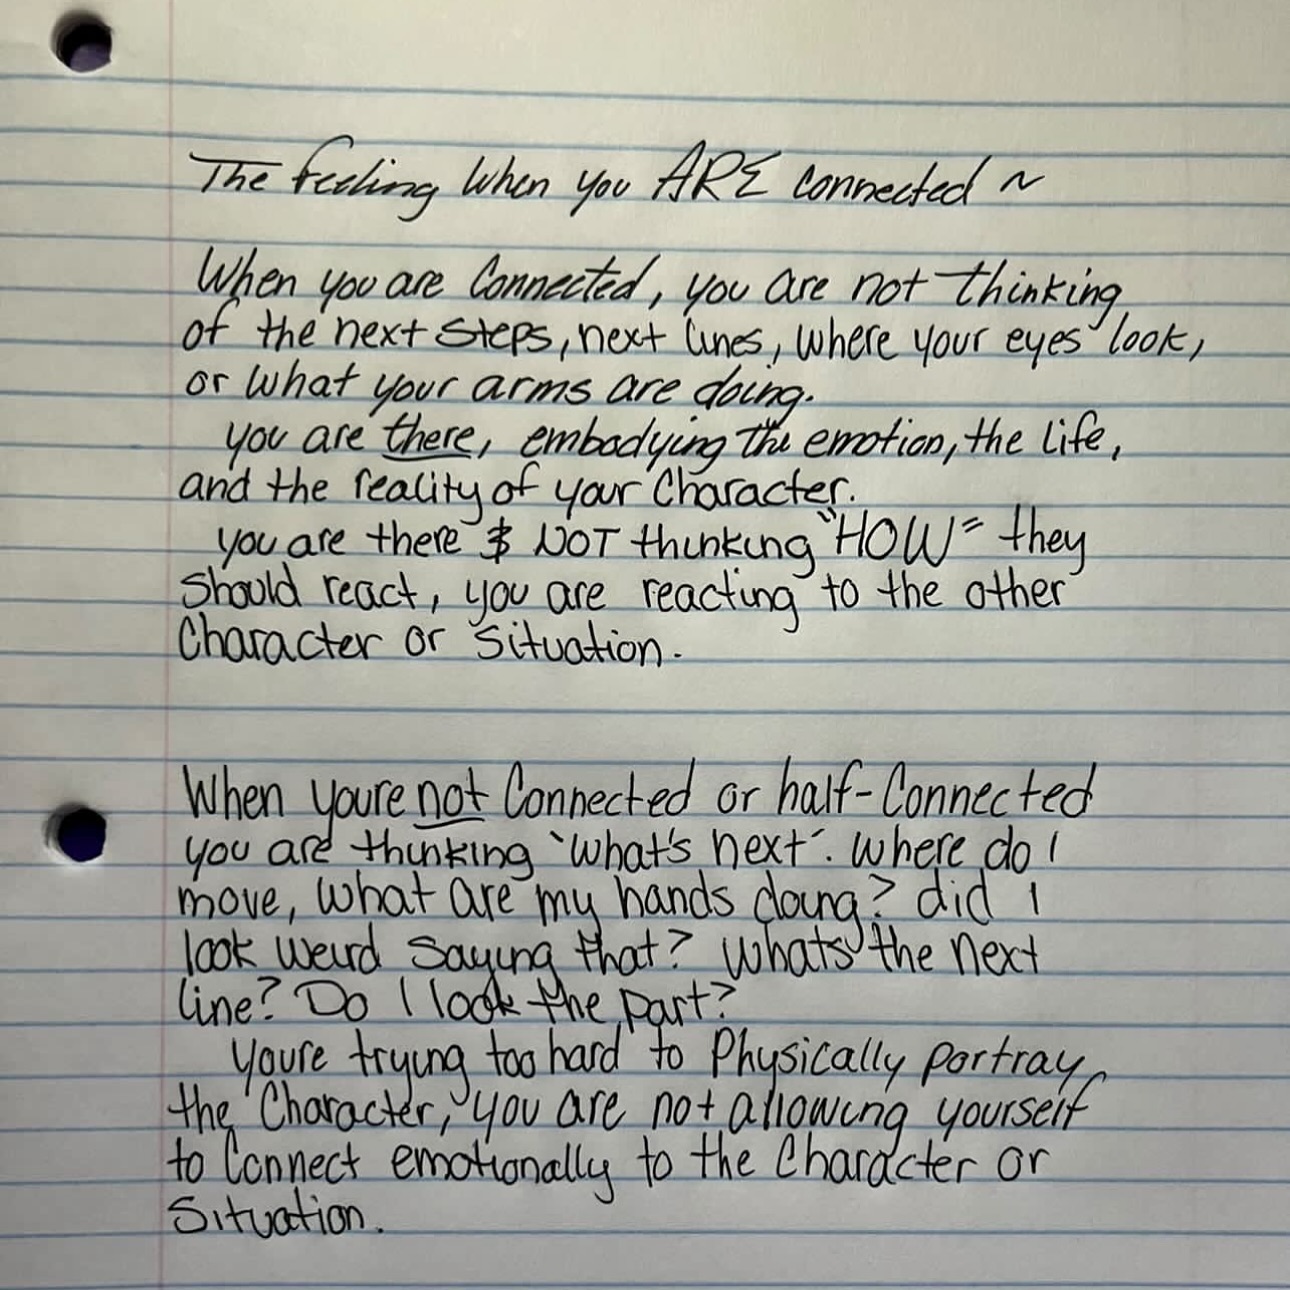 The feeling when you ARE connected ~
When you are Connected, you are not thinking
of the next steps, next lines, where your eyes look,
or what your arms are doing.
you are there, embodying the emotion, the life,
and the reality of your Character.
you are there & NOT thinking "HOW" they
should react, you are reacting to the other
Character or situation.
When youre not Connected or half-Connected
you are thinking "what's next". where do I
move, what are my hands doing? did I
look weird saying that? whats the next
line? Do I look the part?
Youre trying too hard to Physically portray
the Character, you are not allowing yourself
to Connect emotionally to the Character or
Situation.